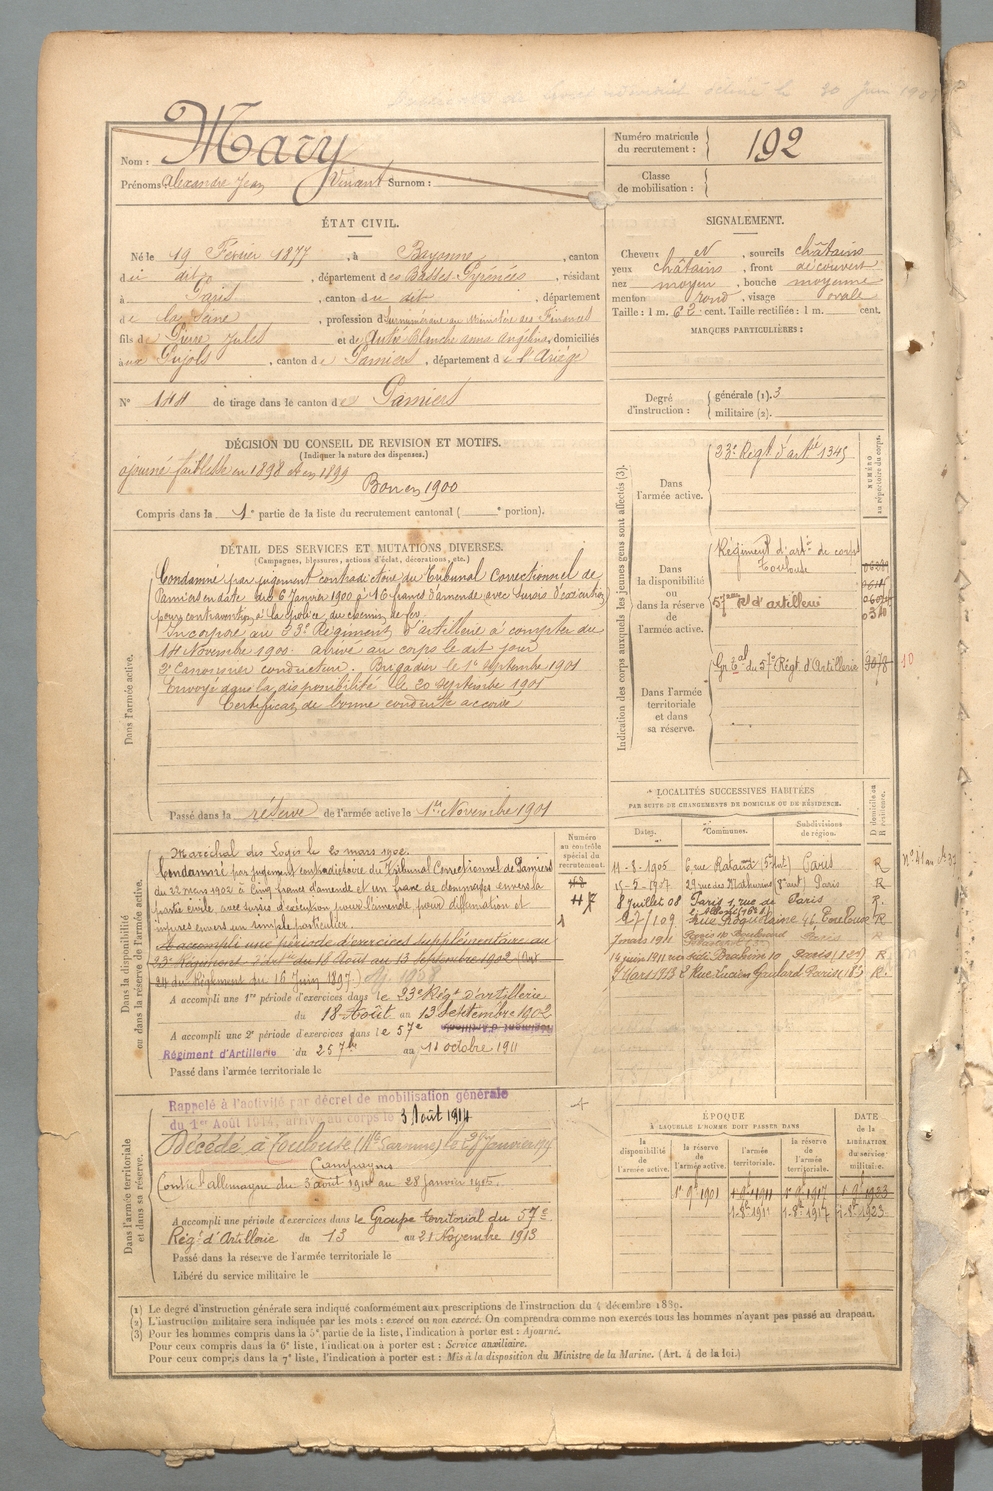 Nom : Mary
Prénoms : Alexandre Jean Vincent Surnom :
Numéro matricule du recrutement : 192
Classe de mobilisation :
ÉTAT CIVIL.
Né le 19 Février 1877, à Bayonne, canton
du dit, département des Basses Pyrénées, résidant
à Paris, canton du dit, département
de la Seine, profession de Surnuméraire au Ministère des Finances
fils de Pierre Jules et de Autié Blanche Anna Angélina, domiciliés
aux Pujols, canton de Pamiers, département de l'Ariège
N° 144 de tirage dans le canton de Pamiers
SIGNALEMENT.
Cheveux et, sourcils châtains
yeux châtains, front découvert
nez moyen, bouche moyenne
menton rond, visage ovale
Taille : 1 m. 62 cent. Taille rectifiée : 1 m. cent.
MARQUES PARTICULIÈRES :
Degré d'instruction : générale (1). 3
militaire (2).
DÉCISION DU CONSEIL DE REVISION ET MOTIFS.
(Indiquer la nature des dispenses.)
ajourné faiblesse en 1898 et en 1899
Bon en 1900
Compris dans la 1e partie de la liste du recrutement cantonal ( e portion).
DÉTAIL DES SERVICES ET MUTATIONS DIVERSES.
(Campagnes, blessures, actions d'éclat, décorations, etc.)
Dans l'armée active.
Condamné par jugement contradictoire du Tribunal Correctionnel de
Pamiers en date du 6 Janvier 1900 à 16 francs d'amende avec sursis d'exécution
pour contravention à la police du chemin de fer.
Incorporé au 23e Régiment d'artillerie à compter du
14 Novembre 1900. arrivé au corps le dit jour
2e Canonnier conducteur. Brigadier le 1er Septembre 1901
Envoyé dans la disponibilité le 20 septembre 1901
Certificat de bonne conduite accordé
Passé dans la réserve de l'armée active le 1er Novembre 1901
Indication des corps auxquels les jeunes gens sont affectés (3).
NUMÉRO au répertoire du corps.
Dans l'armée active.
23e Régt d'artie 1345
Dans la disponibilité ou dans la réserve de l'armée active.
Régiment d'artie de corps
Toulouse
57ème Rt d'artillerie
Dans l'armée territoriale et dans sa réserve.
Gr. Eal du 57e Régt. d'Artillerie
10
LOCALITÉS SUCCESSIVES HABITÉES
PAR SUITE DE CHANGEMENTS DE DOMICILE OU DE RÉSIDENCE.
Dates. Communes. Subdivisions de région. D domicile ou R résidence.
11-8-1905 6 rue Rataud (5e Art) Paris R
15-5-1907 29 rue des Mathurins (8e art) Paris R
8 juillet 08 Paris 1 rue de Paris R.
27/1 09 Toulouse R
7 mars 1911 Paris 110 Boulevard Paris R
14 juin 1911 Paris R
8 Mars 1913 8 Rue Lucien Gaulard Paris (18e) R.
Dans la disponibilité ou dans la réserve de l'armée active.
Numéro au contrôle spécial du recrutement.
Maréchal des Logis le 20 mars 1902.
Condamné par jugement contradictoire du Tribunal Correctionnel de Pamiers
du 22 mars 1902 à Cinq francs d'amende et un franc de dommages envers la
partie civile, avec sursis d'exécution pour l'amende, pour diffamation et
injures envers un simple particulier.
A accompli une période d'exercices supplémentaire au
23e Régiment d'artie du 18 Août au 13 Septembre 1902 (Art
24 du Règlement du 16 Juin 1897)
A accompli une 1re période d'exercices dans le 23e Régt d'artillerie
du 18 Août au 13 Septembre 1902
A accompli une 2e période d'exercices dans le 57e
Régiment d'Artillerie du 25 7bre au 11 octobre 1911
Passé dans l'armée territoriale le
Dans l'armée territoriale et dans sa réserve.
Rappelé à l'activité par décret de mobilisation générale
du 1er Août 1914, arrivé au corps le 3 Août 1914
Décédé à Toulouse (Hte Garonne) le
Campagnes
Contre l'Allemagne du 3 août 1914 au 28 janvier
A accompli une période d'exercices dans le Groupe territorial du 57e
Régt d'Artillerie du 13 au 21 Novembre 1913
Passé dans la réserve de l'armée territoriale le
Libéré du service militaire le
ÉPOQUE
À LAQUELLE L'HOMME DOIT PASSER DANS
la disponibilité de l'armée active. la réserve de l'armée active. l'armée territoriale. la réserve de l'armée territoriale.
DATE de la LIBÉRATION du service militaire.
1er 9bre 1901 1er 9bre 1911 1er 9bre 1917 1er 9bre 1923
1-8bre 1911 1-8bre 1917 1-8bre 1923
(1) Le degré d'instruction générale sera indiqué conformément aux prescriptions de l'instruction du 4 décembre 1889.
(2) L'instruction militaire sera indiquée par les mots : exercé ou non exercé. On comprendra comme non exercés tous les hommes n'ayant pas passé au drapeau.
(3) Pour les hommes compris dans la 5e partie de la liste, l'indication à porter est : Ajourné.
Pour ceux compris dans la 6e liste, l'indication à porter est : Service auxiliaire.
Pour ceux compris dans la 7e liste, l'indication à porter est : Mis à la disposition du Ministre de la Marine. (Art. 4 de la loi.)